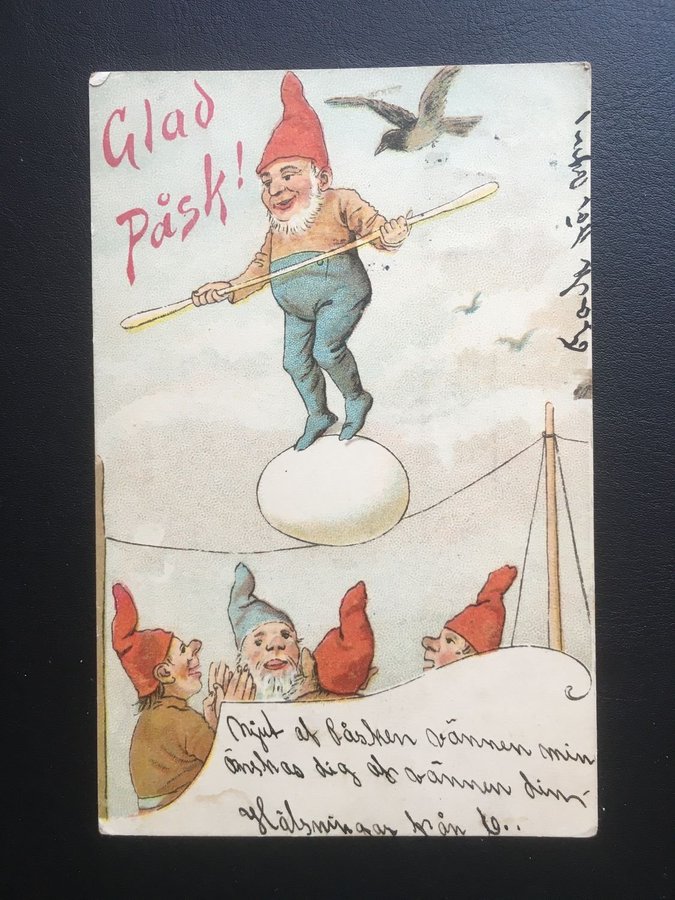 Glad
Påsk!
Njut af Påsken vännen min
önskas dig af vännen din.
Hälsningar från